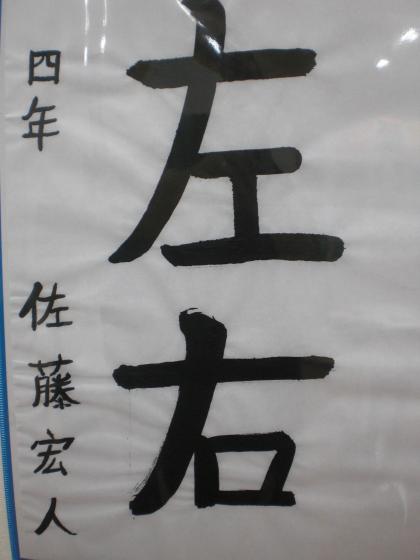 左右
四年 佐藤宏人